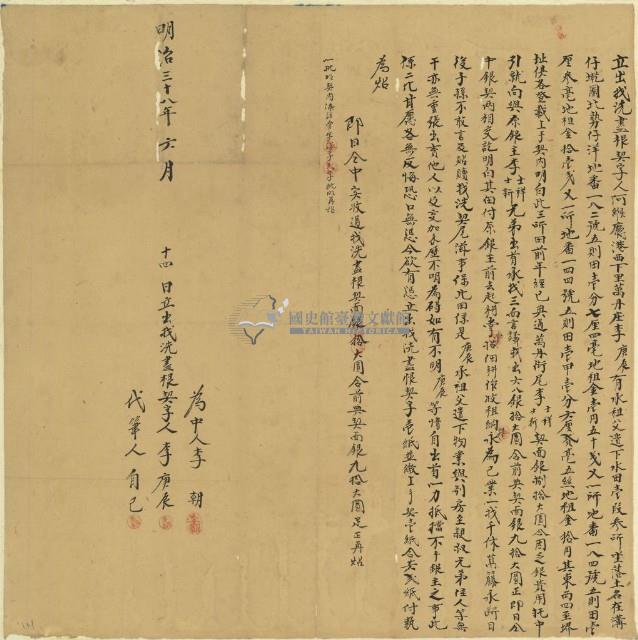 立出找洗盡根契字人阿緱廳港西下里萬丹庄李庚辰有承祖父遺下水田壹段參所坐落土名在濱
仔墘圍北勢仔洋地番一八二號五則田壹分七厘四毫地租金壹円五十戋又一所地番一八四號五則田壹
厘參毫地租金拾壹戋又一所地番一四四號五則田壹甲壹分六厘參毫五絲地租金拾円其東西四至界
址俱各登載上手契內明白此三所田前年經已典過萬丹街尾李士祥士新契面銀捌拾大圓今因乏銀費用托中
引就向與原銀主李士祥士新兄弟出首承找三面言議找出六八銀拾大圓合前典契面銀九拾大圓正即日仝
中銀契兩相交訖明白其田付原銀主前去起耕掌招佃耕作收租納永為己業一找千休萬藤永斷日
後子孫不敢言及貼贖找洗契尾滋事保此田係是庚辰承祖父遺下物業與別房至親叔兄弟侄人等無
干亦無重張出賣他人以及交加來歷不明為碍如有不明庚辰等情自出首一力抵擋不干銀主之事此
係二比甘愿各無反悔恐口無憑今欲有憑立出找洗盡根契字壹紙並繳上手契壹紙合共貳紙付執
為炤
即日仝中實收過找洗盡根契面銀拾大圓合前典契面銀九拾大圓足正再炤
明治三十八年六月
十四日立出找洗盡根契字人李庚辰
為中人李朝
代筆人自己
國史館臺灣文獻館
TAIWAN HISTORICA